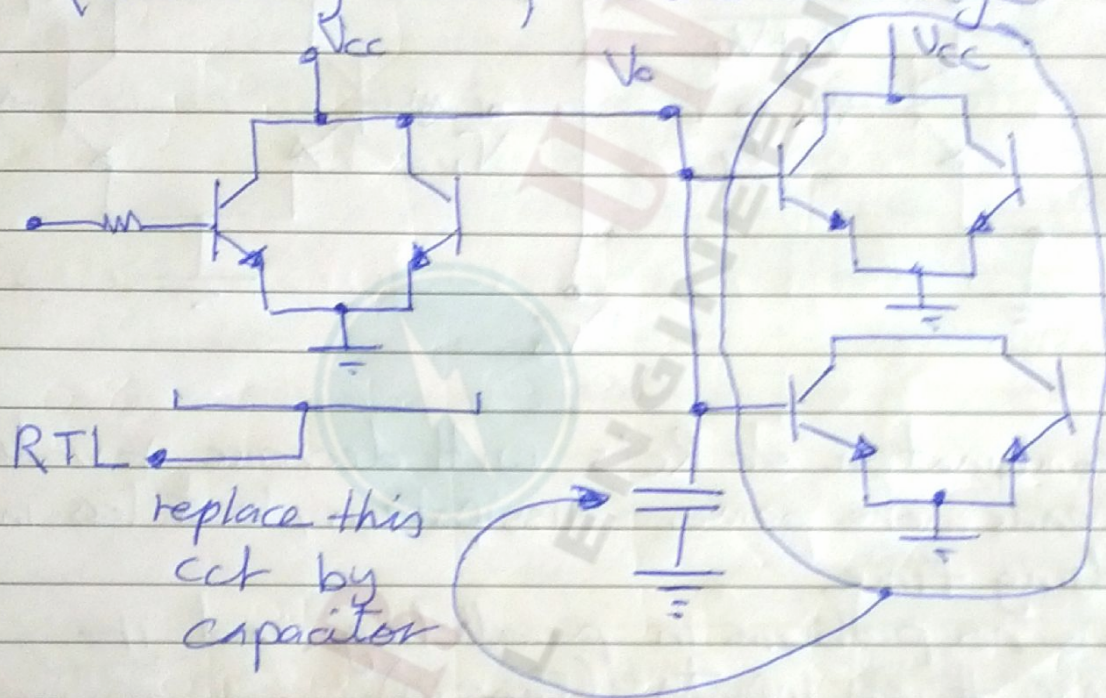 Vcc
Vo
Vcc
RTL
replace this
cct by
capacitor
ENGINEER